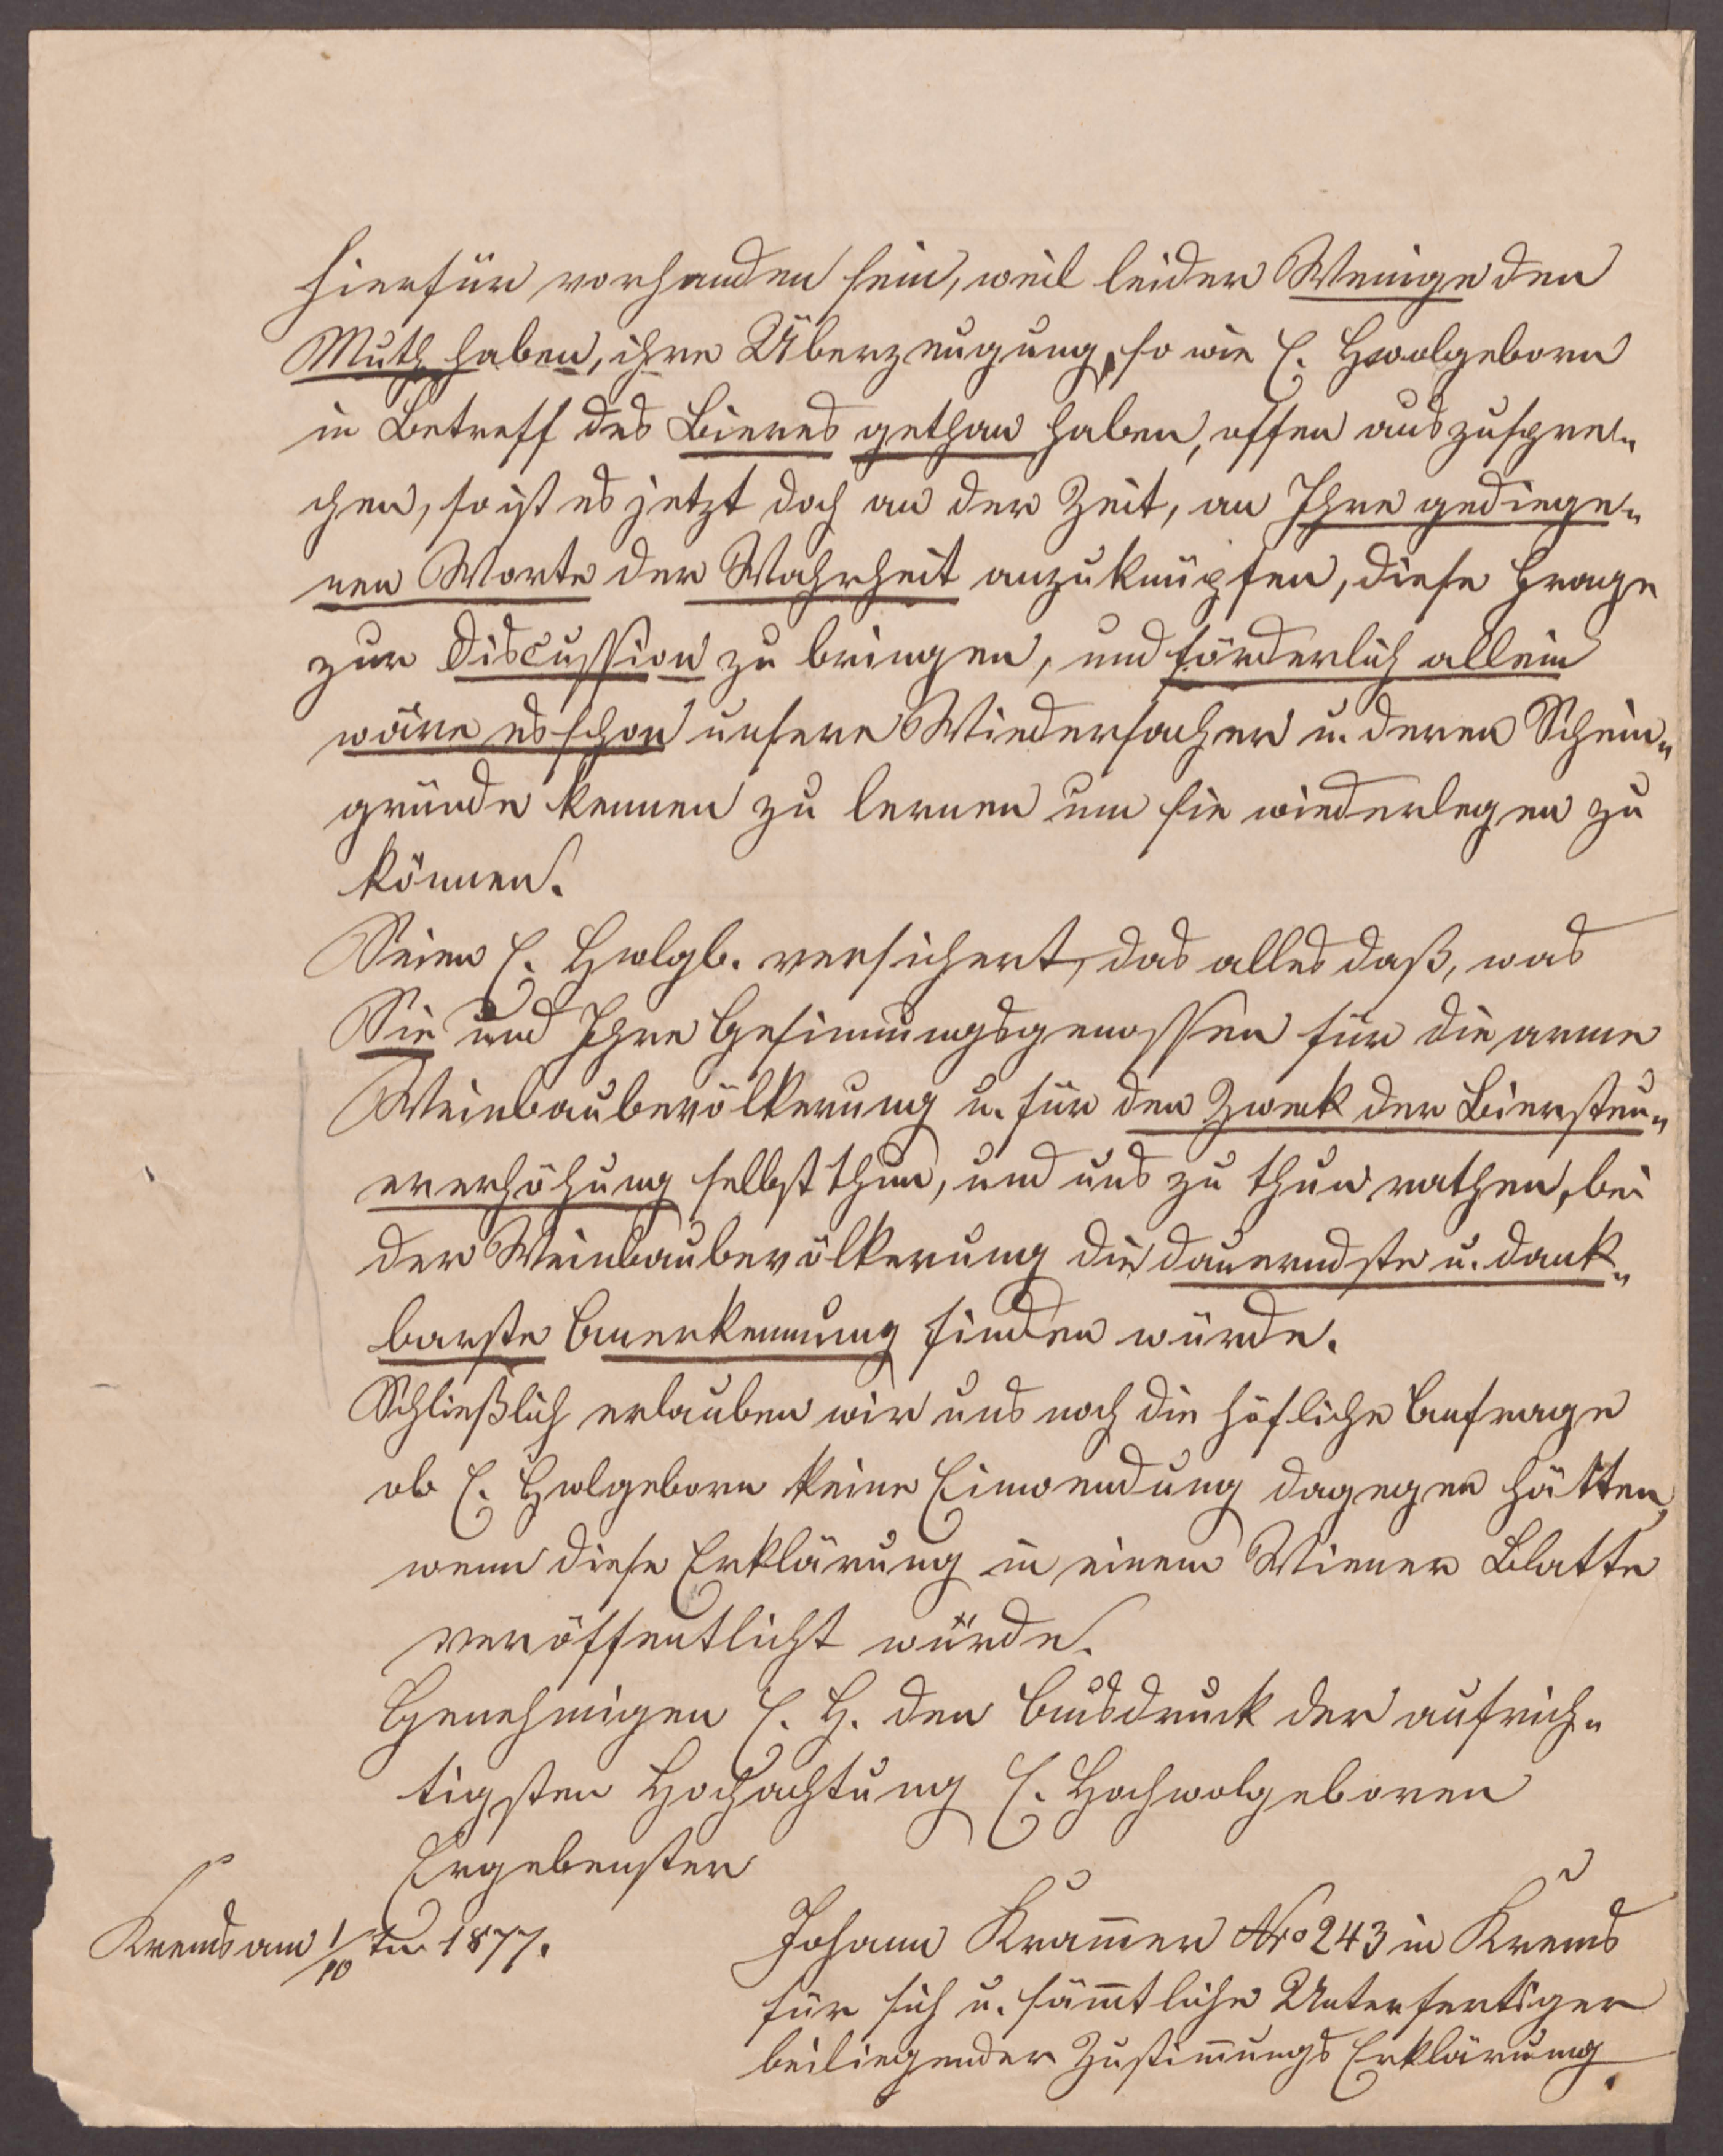 hierfür vorhanden sein, weil leider Wenige den
Muth haben, ihre Überzeugung, so wie E. Hwolgeborn
in Betreff des Bieres gethan haben, offen auszuspre„
chen, so ist es jetzt doch an der Zeit, an Ihre gediege„
nen Worte der Wahrheit anzuknüpfen, diese Frage
zur Discussion zu bringen, und förderlich allein
wäre es schon unsere Wiedersacher u. deren Schein„
gründe kennen zu lernen um sie wiederlegen zu
können.
Seien E. Hwlgb. versichert, das alles daß, was
Sie und Ihre Gesinnungsgenossen für die arme
Weinbaubevölkerung u. für den Zweck der Biersteu„
ererhöhung selbst thun, und uns zu thun rathen, bei
der Weinbaubevölkerung die dauerndste u. dank„
barste Anerkennung finden würde.
Schließlich erlauben wir uns noch die höfliche Anfrage
ob E. Hwlgeborn keine Einwendung dagegen hätten,
wenn diese Erklärung in einem Wiener Blatte
veröffentlicht würde.
Genehmigen E. H. den Ausdruck der aufrich„
tigsten Hochachtung E. Hochwolgeboren
Ergebenster
Krems am 1/10 1877.
Johann Kram̅er Nro 243 in Krems
für sich u. säm̅tliche Unterfertiger
beiliegender Zustim̅ungs Erklärung.